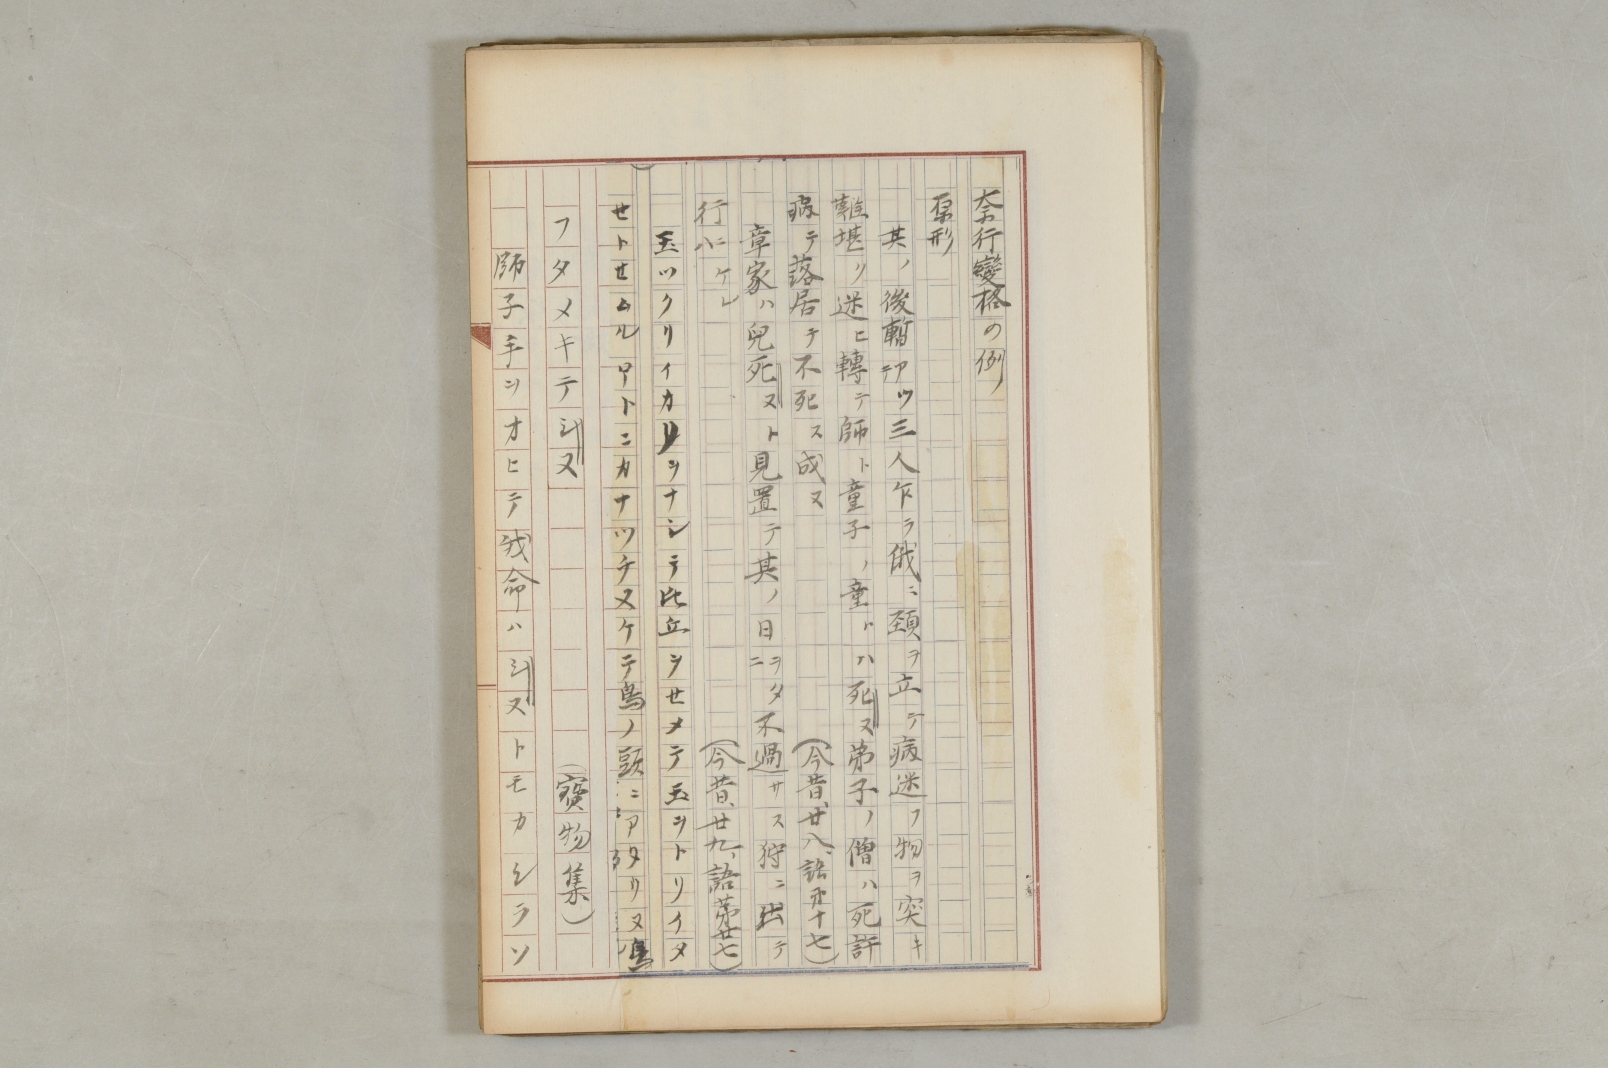 奈行變格の例
原形
其ノ後暫アツテ三人乍ラ俄ニ頚ヲ立テ病迷フ物ヲ突キ
難堪ク迷ヒ轉テ師ト童子ノ童トハ死ヌ弟子ノ僧ハ死許
病テ落居テ不死ス成ヌ (今昔、廿八、語第十七)
章家ハ兒死ヌト見置テ其ノ日ヲタニ不過サス狩ニ出テ
行ニケレハ (今昔、廿九、語第廿七)
玉ツクリイカリヲナシテ比丘ヲセメテ玉ヲトリイタ
セトセムルアトニカナツチヌケテ鳥ノ頭ニアタリヌ鳥
フタメキテシヌ (寳物集)
師子手ヲオヒテ我命ハシヌトモカシラソ